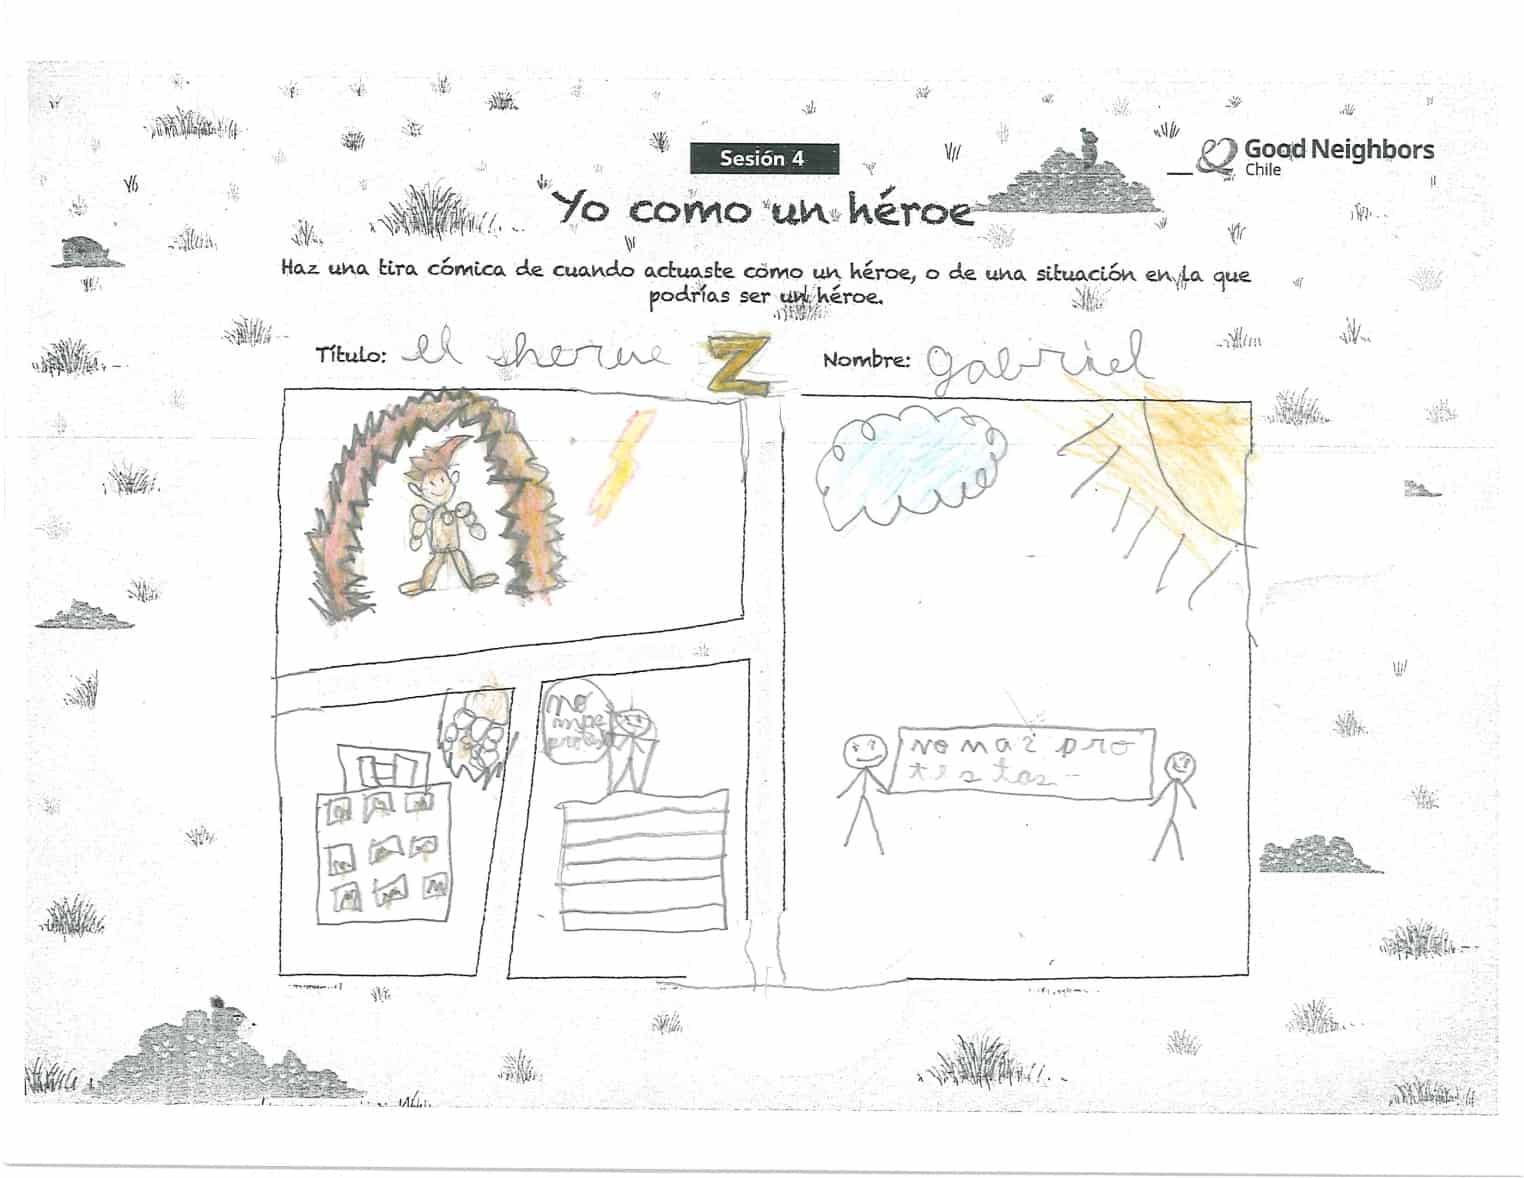 Sesión 4
Good Neighbors
Chile
Yo como un héroe
Haz una tira cómica de cuando actuaste como un héroe, o de una situación en la que
podrías ser un héroe.
Título: el heroe Z
Nombre: gabriel
H
no
no mas pro
testas